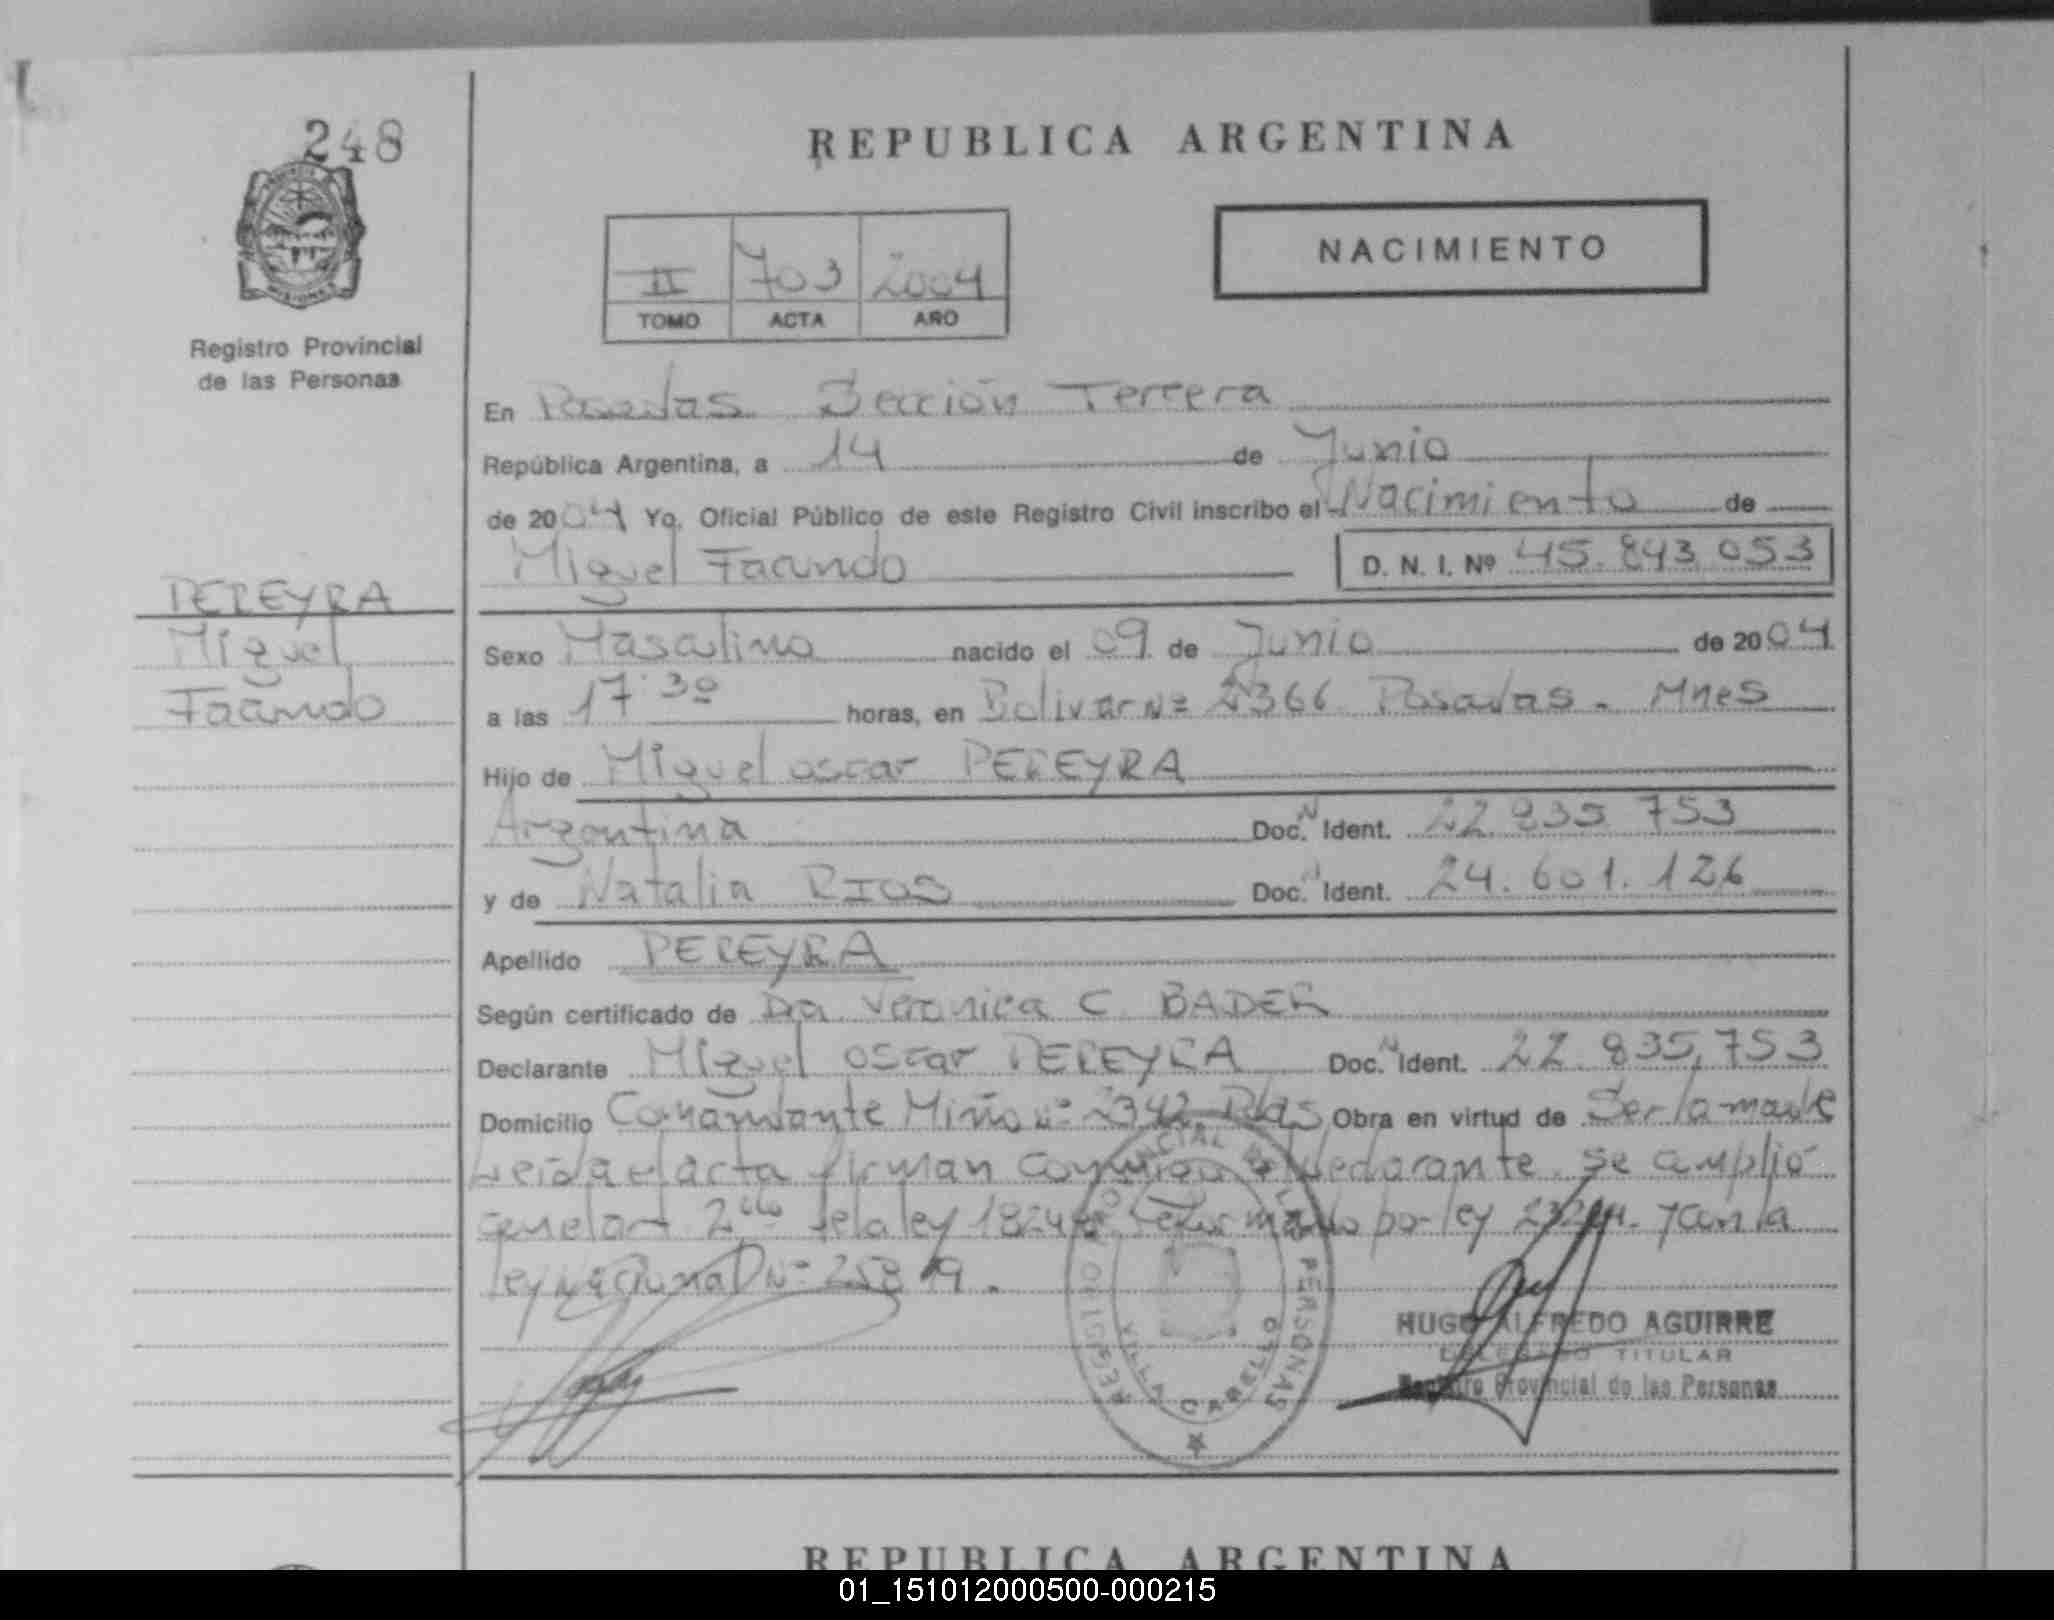 248
REPUBLICA ARGENTINA
NACIMIENTO
II 703 2004
TOMO ACTA AÑO
Registro Provincial
de las Personas
En Posadas Sección Tercera
República Argentina, a 14 de Junio
de 2004 Yo, Oficial Público de este Registro Civil inscribo el Nacimiento de
Miguel Facundo D. N. I. Nº 45.843.053
PEREYRA
Miguel
Facundo
Sexo Masculino nacido el 09 de Junio de 2004
a las 17:30 horas, en Bolivar Nº 2366 Posadas - Mnes
Hijo de Miguel oscar PEREYRA
Argentina Doc. N Ident. 22.835.753
y de Natalia RIOS Doc. N Ident. 24.601.126
Apellido PEREYRA
Según certificado de Dra. Veronica C. BADER
Declarante Miguel oscar PEREYRA Doc. N Ident. 22.835.753
Domicilio Comandante Miño Nº 2342 Pdas Obra en virtud de Ser la madre
Leida el acta firman conmigo declarante. se amplió
con el art. 2do de la ley 18248 reformado por ley y con la
ley Nacional Nº 25819.
REGISTRO PROVINCIAL DE LAS PERSONAS
VILLA CABELLO
HUGO ALFREDO AGUIRRE
DELEGADO TITULAR
Registro Provincial de las Personas
REPUBLICA ARGENTINA
01_151012000500-000215